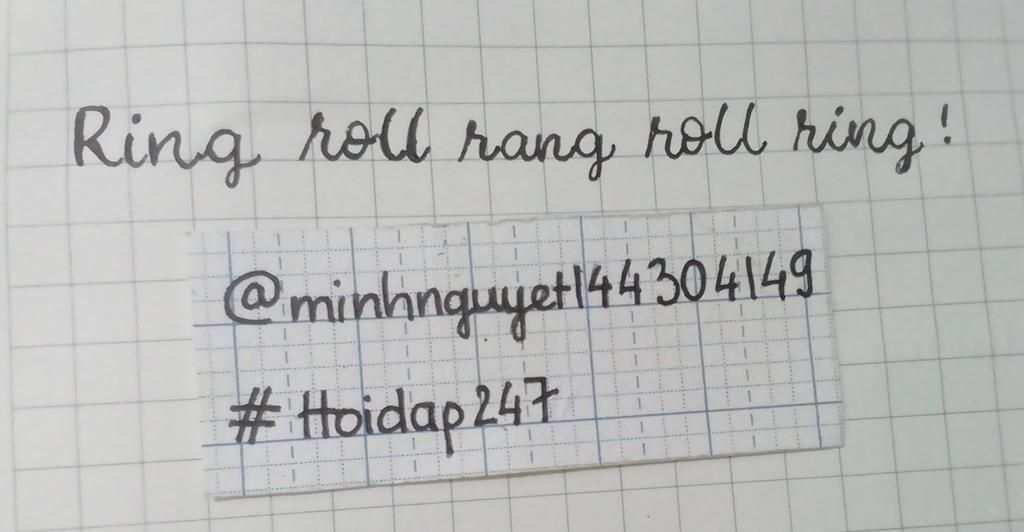 Ring roll rang roll ring!
@minhnguyet144304149
# Hoidap247